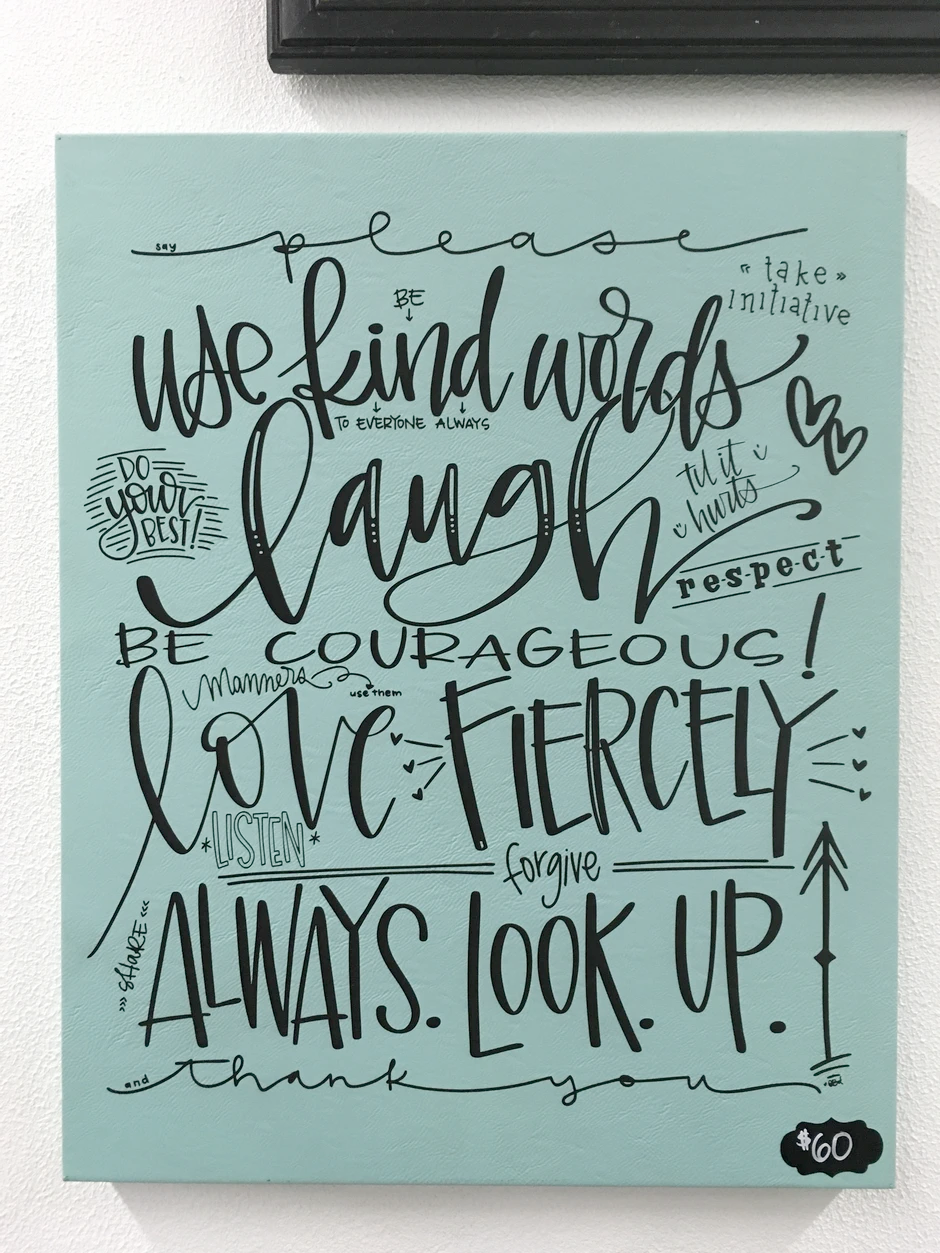 say please
« take »
initiative
BE
use kind words
TO EVERYONE ALWAYS
DO
your
BEST!
laugh
til it
hurts
respect
BE COURAGEOUS!
Manners
use them
love FIERCELY
*LISTEN*
forgive
>>> SHARE <<<
ALWAYS. LOOK. UP.
and thank you
$60